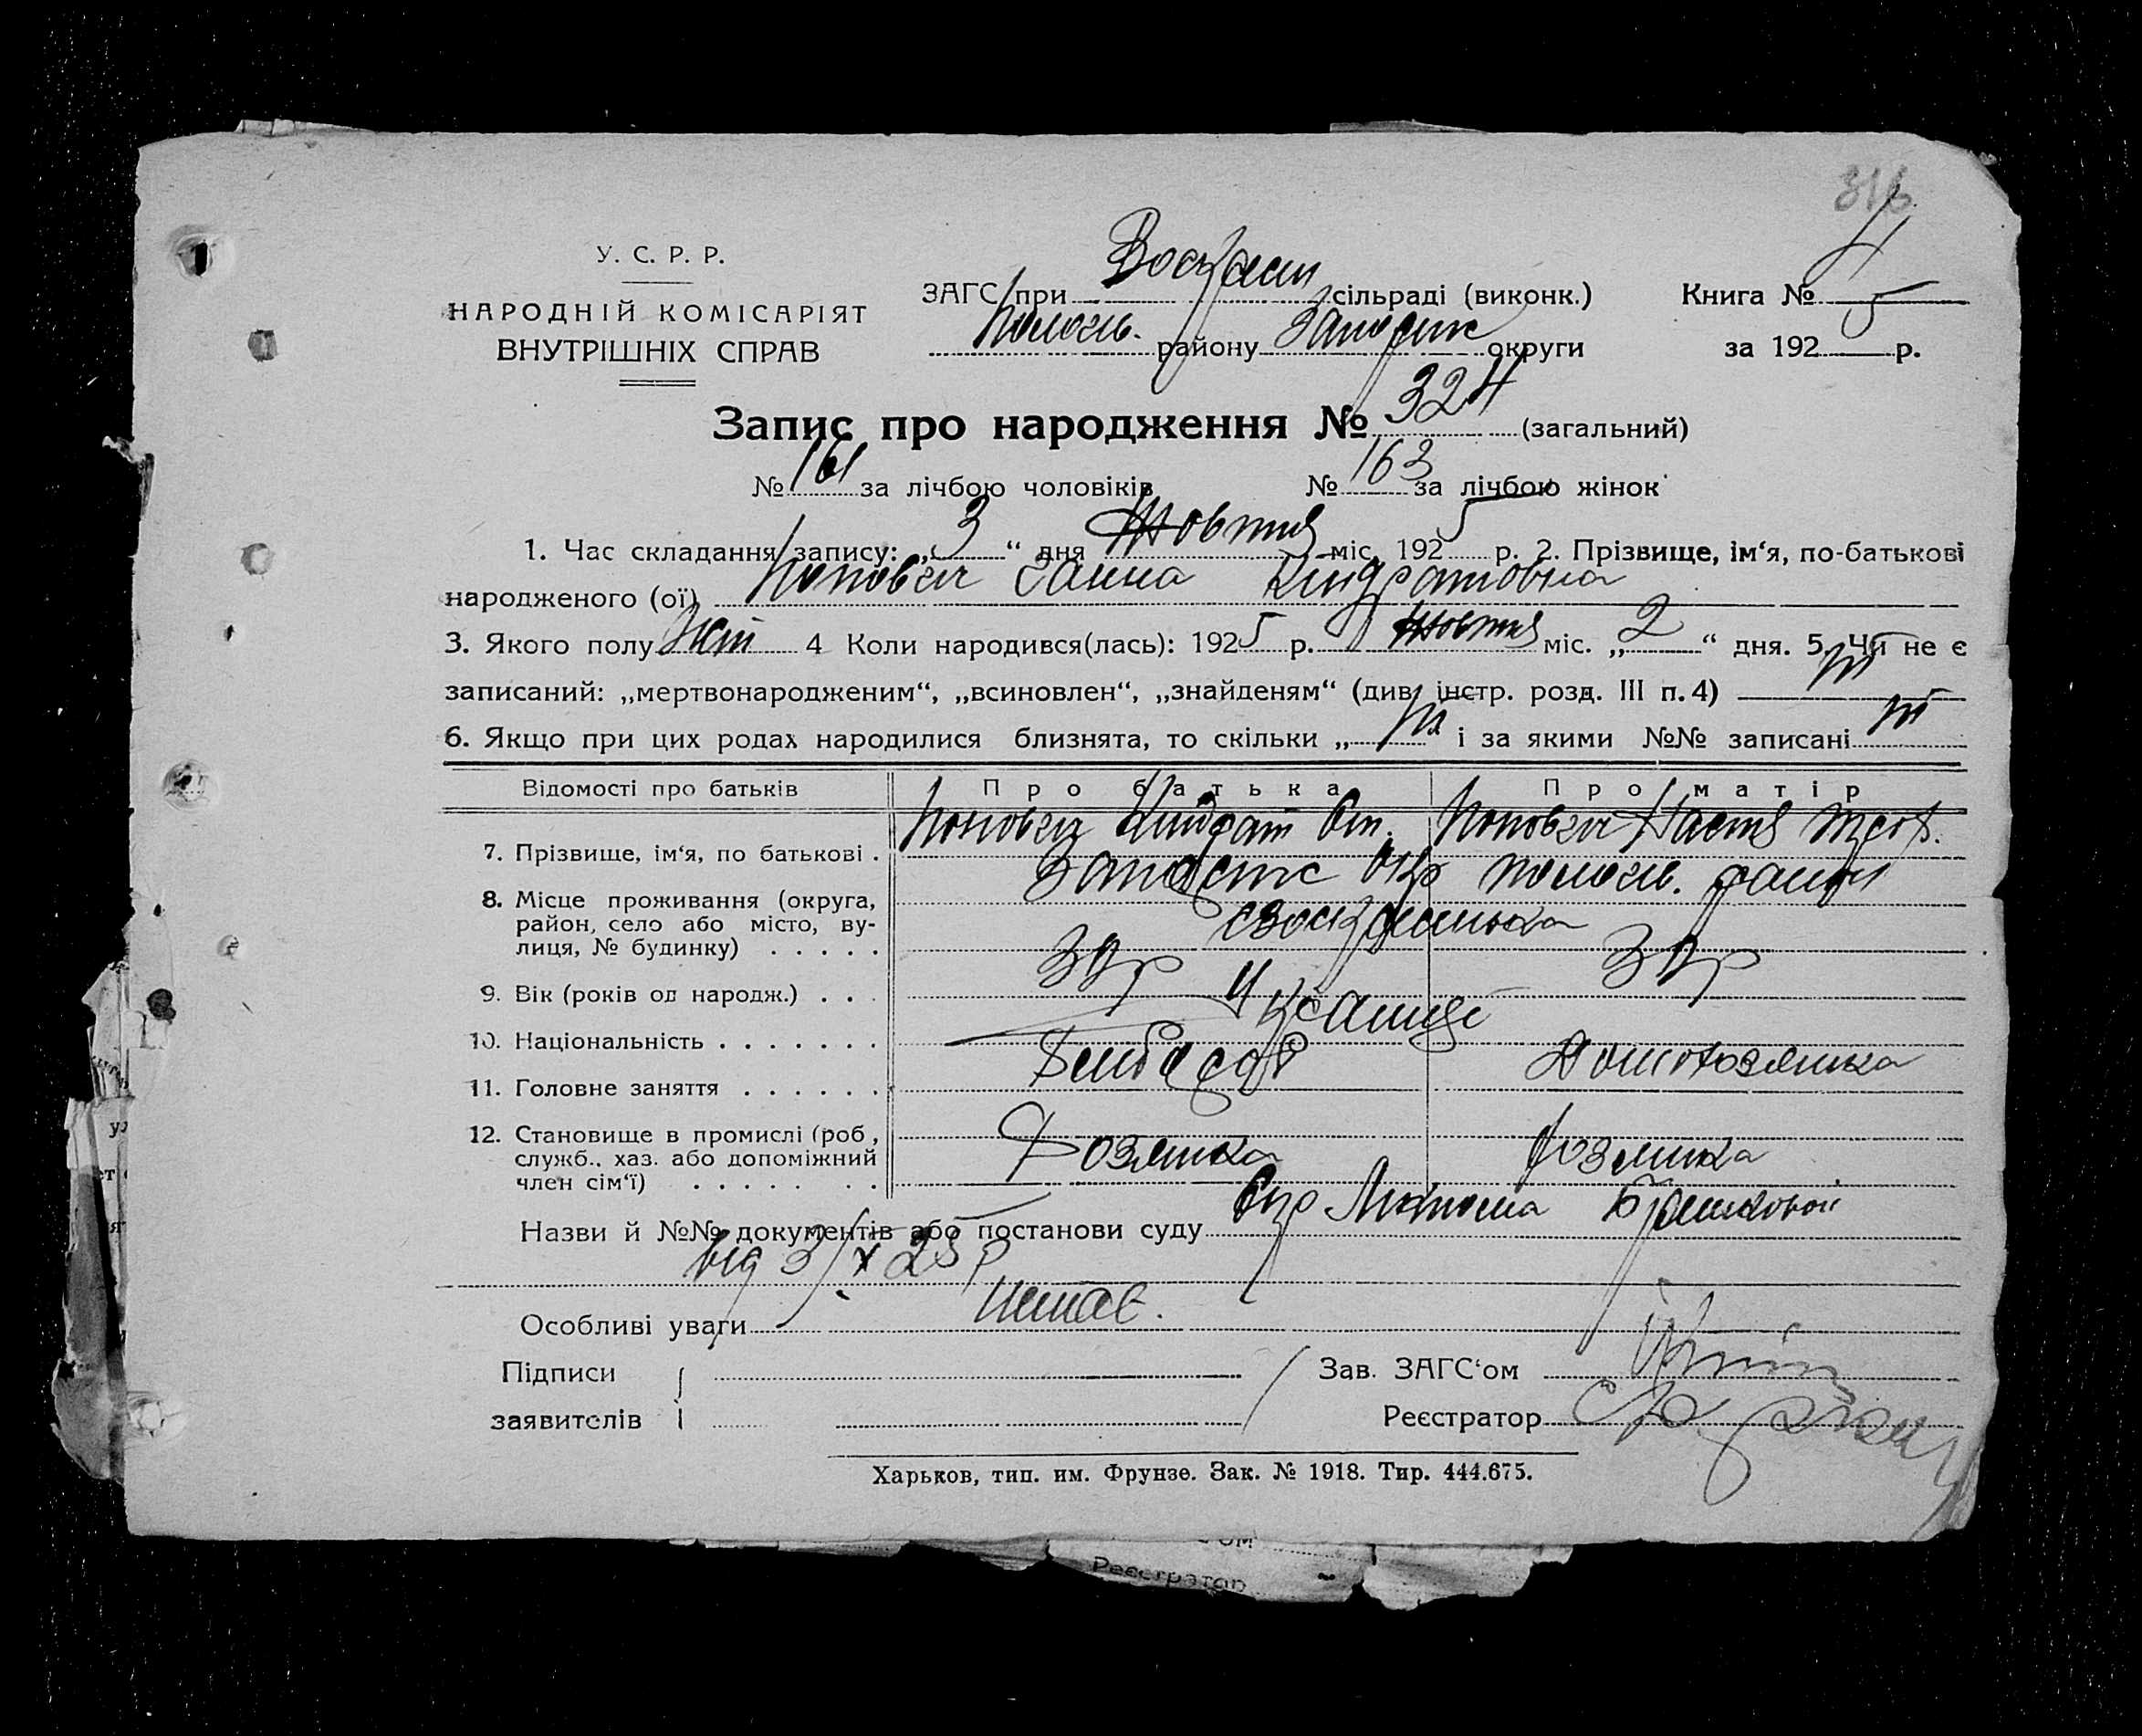 316
У. С. Р. Р.
НАРОДНІЙ КОМІСАРІЯТ
ВНУТРІШНІХ СПРАВ
ЗАГС при Воскресен сільраді (виконк.)
Пологів. району Запоріж округи
Книга № 4
за 1925 р.
Запис про народження № 324 (загальний)
№ 161 за лічбою чоловіків № 163 за лічбою жінок
1. Час складання запису: „3“ дня Жовтня міс. 1925 р. 2. Прізвище, ім‘я, по-батькові
народженого (ої) Ганна Кіндратовна
3. Якого полу Жін 4 Коли народився(лась): 1925 р. Жовтня міс. „2“ дня. 5. Чи не є
записаний: „мертвонародженим“, „всиновлен“, „знайденям“ (див. інстр. розд. III п. 4)
6. Якщо при цих родах народилися близнята, то скільки „ “ і за якими №№ записані
Відомості про батьків Про батька Про матір
7. Прізвище, ім‘я, по батькові . Кіндрат Настя
8. Місце проживання (округа, Запоріж Окр Пологів. району
район, село або місто, ву-
лиця, № будинку) . . . . .
9. Вік (років од народж.) . . . 30р 30р
10. Національність . . . . . . . Українці
11. Головне заняття . . . . . . Хлібороб Домохозяика
12. Становище в промислі (роб., Хозяика Хозяика
служб., хаз. або допоміжний
член сім‘ї) . . . . . . .
Назви й №№ документів або постанови суду
від 3/X 25 р
Особливі уваги Немає.
Підписи
заявителів
Зав. ЗАГС‘ом
Реєстратор
Харьков, тип. им. Фрунзе. Зак. № 1918. Тир. 444.675.
Реєстратор